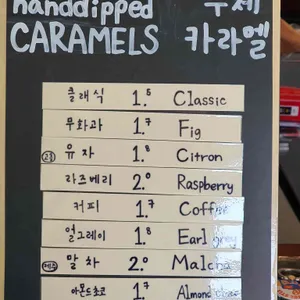 handdipped 수제
CARAMELS 카라멜
클래식 1.5 Classic
무화과 1.7 Fig
유자 1.8 Citron
라즈베리 2.0 Raspberry
커피 1.7 Coffee
얼그레이 1.8 Earl grey
말차 2.0 Malcha
아몬드초코 1.7 Almond